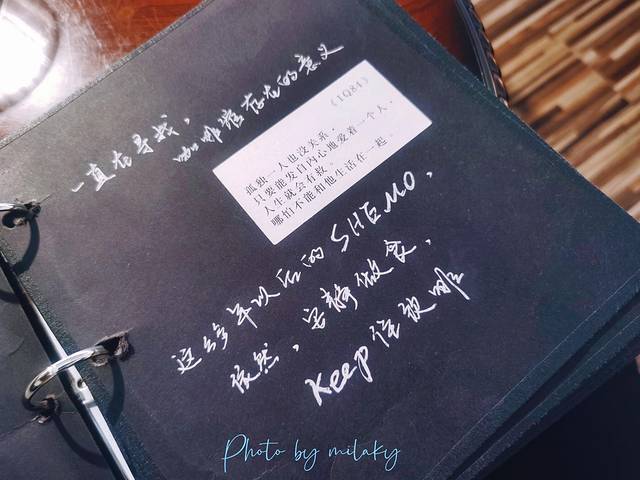 一直在寻找，
咖啡馆存在的意义
《1Q84》
孤独一人也没关系，
只要能发自内心地爱着一个人，
人生就会有救。
哪怕不能和他生活在一起。
这么多年以后的SHEMO，
依然，安静做食，
Keep住初啡
Photo by milaky